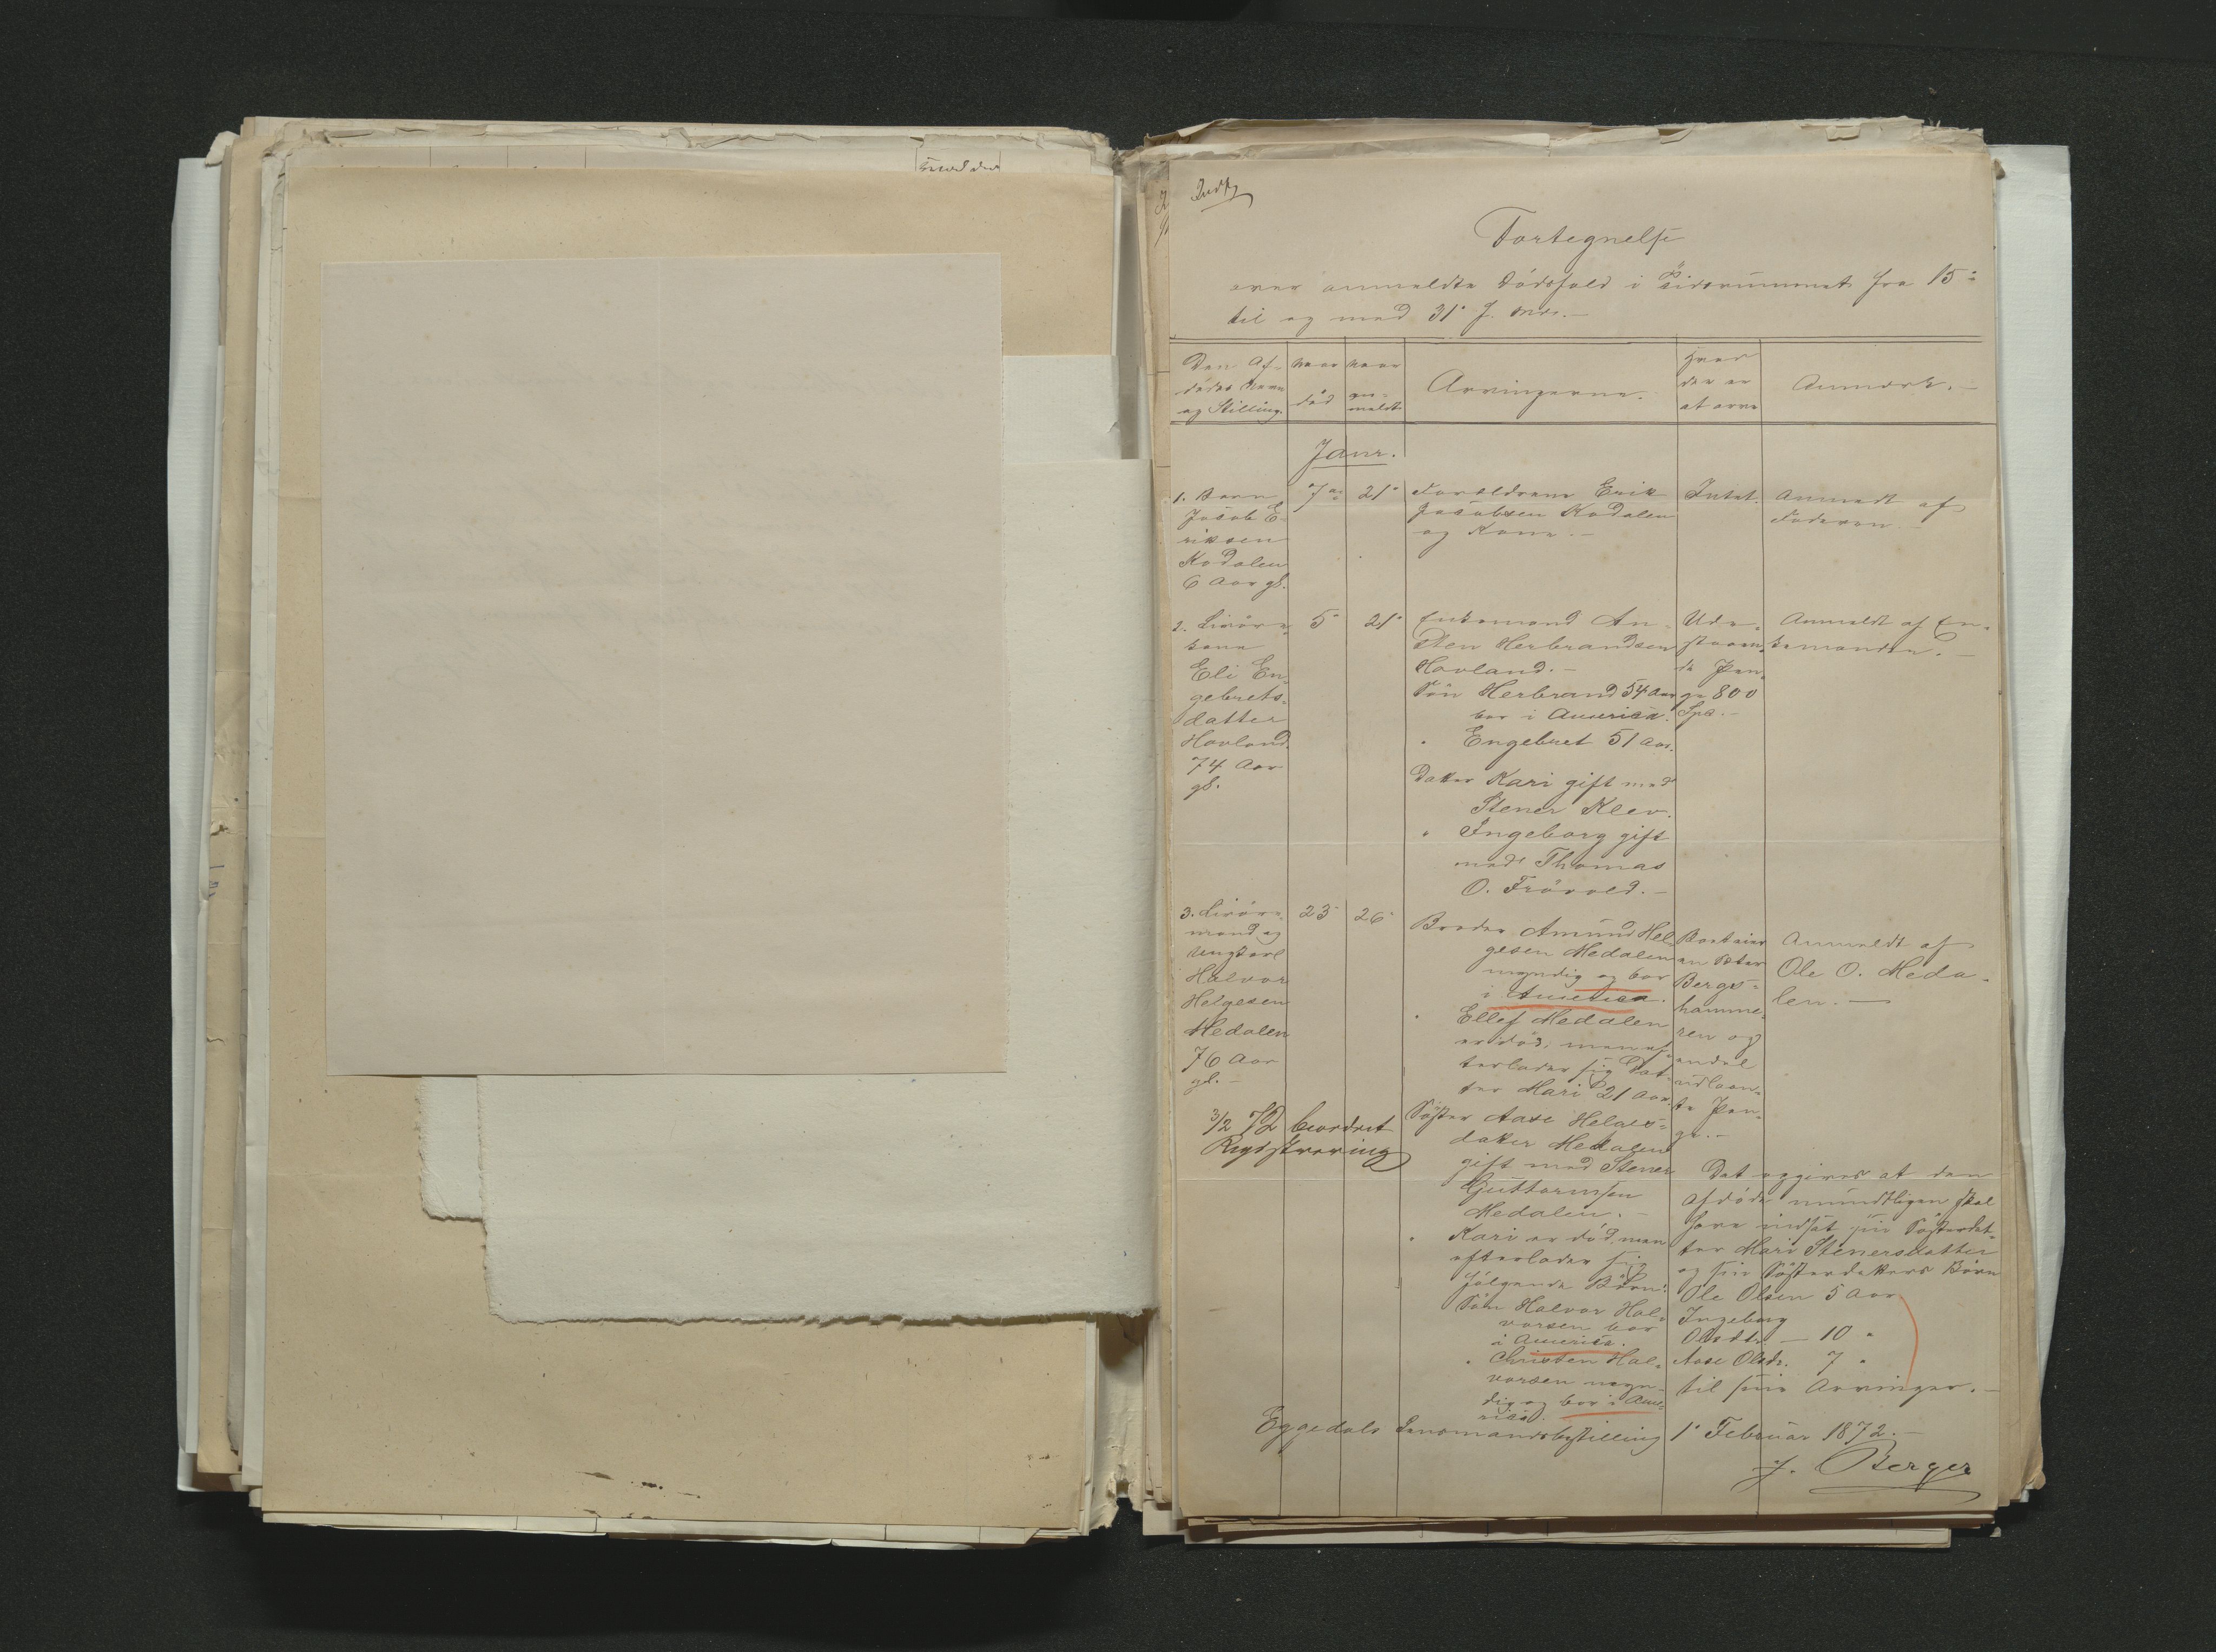 Fortegnelse
over anmeldte Dödsfald i Tidsrummet fra 15de
til og med 31te f. Md. —
Den Af-
dödes Navn
og Stilling.
Naar
död
Naar
an-
meldt
Arvingerne.
Hvad
der er
at arve
Anmærk. —
Janr.
1. Barn
Jacob E-
riksen
Kodalen
6 Aar gl.
7de
21de
Forældrene Erik
Jacobsen Kodalen
og Kone. —
Intet.
Anmeldt af
Faderen. —
2. Livöre-
kone
Eli En-
gebrets-
datter
Hovland
74 Aar
gl.
5
21
Enkemand An-
sten Herbrandsen
Hovland. —
Sön Herbrand 54 Aar
bor i America.
" Engebret 51 Aar.
Datter Kari gift med
Stener Klev.
" Ingeborg gift
med Thomas
O. Frövold. —
Ude-
staaen-
de Pen-
ge 800
Spd. —
Anmeldt af En-
kemanden. —
3. Livöre-
mand og
Ungkarl
Halvor
Helgesen
Medalen
76 Aar
gl. —
23
26
3/2 72 beordret
Registrering
Broder Amund Hel-
gesen Medalen
myndig og bor
i America.
" Ellef Medalen
er död, men ef-
terlader sig Dat-
ter Mari 21 Aar.
Söster Aase Helges-
datter Medalen
gift med Stener
Guttormsen
Medalen. —
" Kari er död, men
efterlader sig
fölgende Börn:
Sön Halvor Hal-
vorsen bor
i America.
" Christen Hal-
vorsen myn-
dig og bor i Ame-
rica.
Peter
Bergs-
hamme-
ren og
andel
udlaan-
te Pen-
ge. —
Anmeldt af
Ole O. Meda-
len. —
Det opgives at den
Afdöde mundtligen skal
have indsat sin Södsterdat-
ter Mari Stenersdatter
og sin Sösterdatters Börn
Ole Olsen 5 Aar
Ingeborg
Olsdtr. — 10 "
Aase Olsdr. 7 "
til sine Arvinger. —
Eggedals Lensmandsbestilling 1 Februar 1872. —
J. Berger